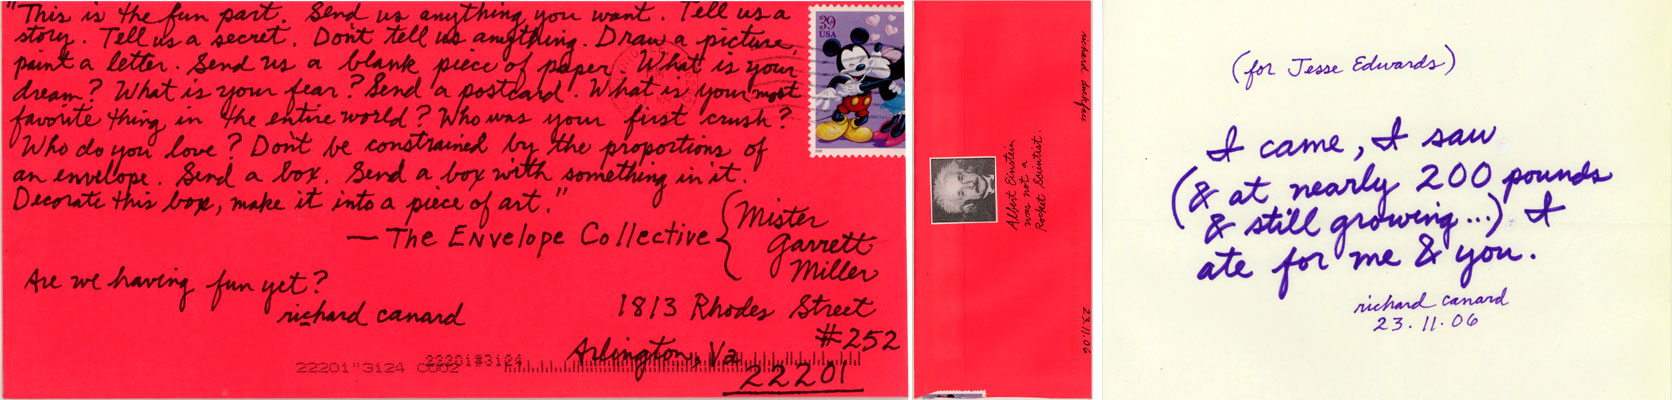 "This is the fun part. Send us anything you want. Tell us a
story. Tell us a secret. Don't tell us anything. Draw a picture,
paint a letter. Send us a blank piece of paper. What is your
dream? What is your fear? Send a postcard. What is your most
favorite thing in the entire world? Who was your first crush?
Who do you love? Don't be constrained by the proportions of
an envelope. Send a box. Send a box with something in it.
Decorate this box, make it into a piece of art."
— The Envelope Collective
Mister
Garrett
Miller
Are we having fun yet?
richard canard
1813 Rhodes Street
#252
Arlington, Va
22201
39
USA
22201"3124
22201#3124
richard
23.11.06
Albert Einstein
was not a
Rocket Scientist.
(for Jesse Edwards)
I came, I saw
(& at nearly 200 pounds
& still growing...) I
ate for me & you.
richard canard
23.11.06